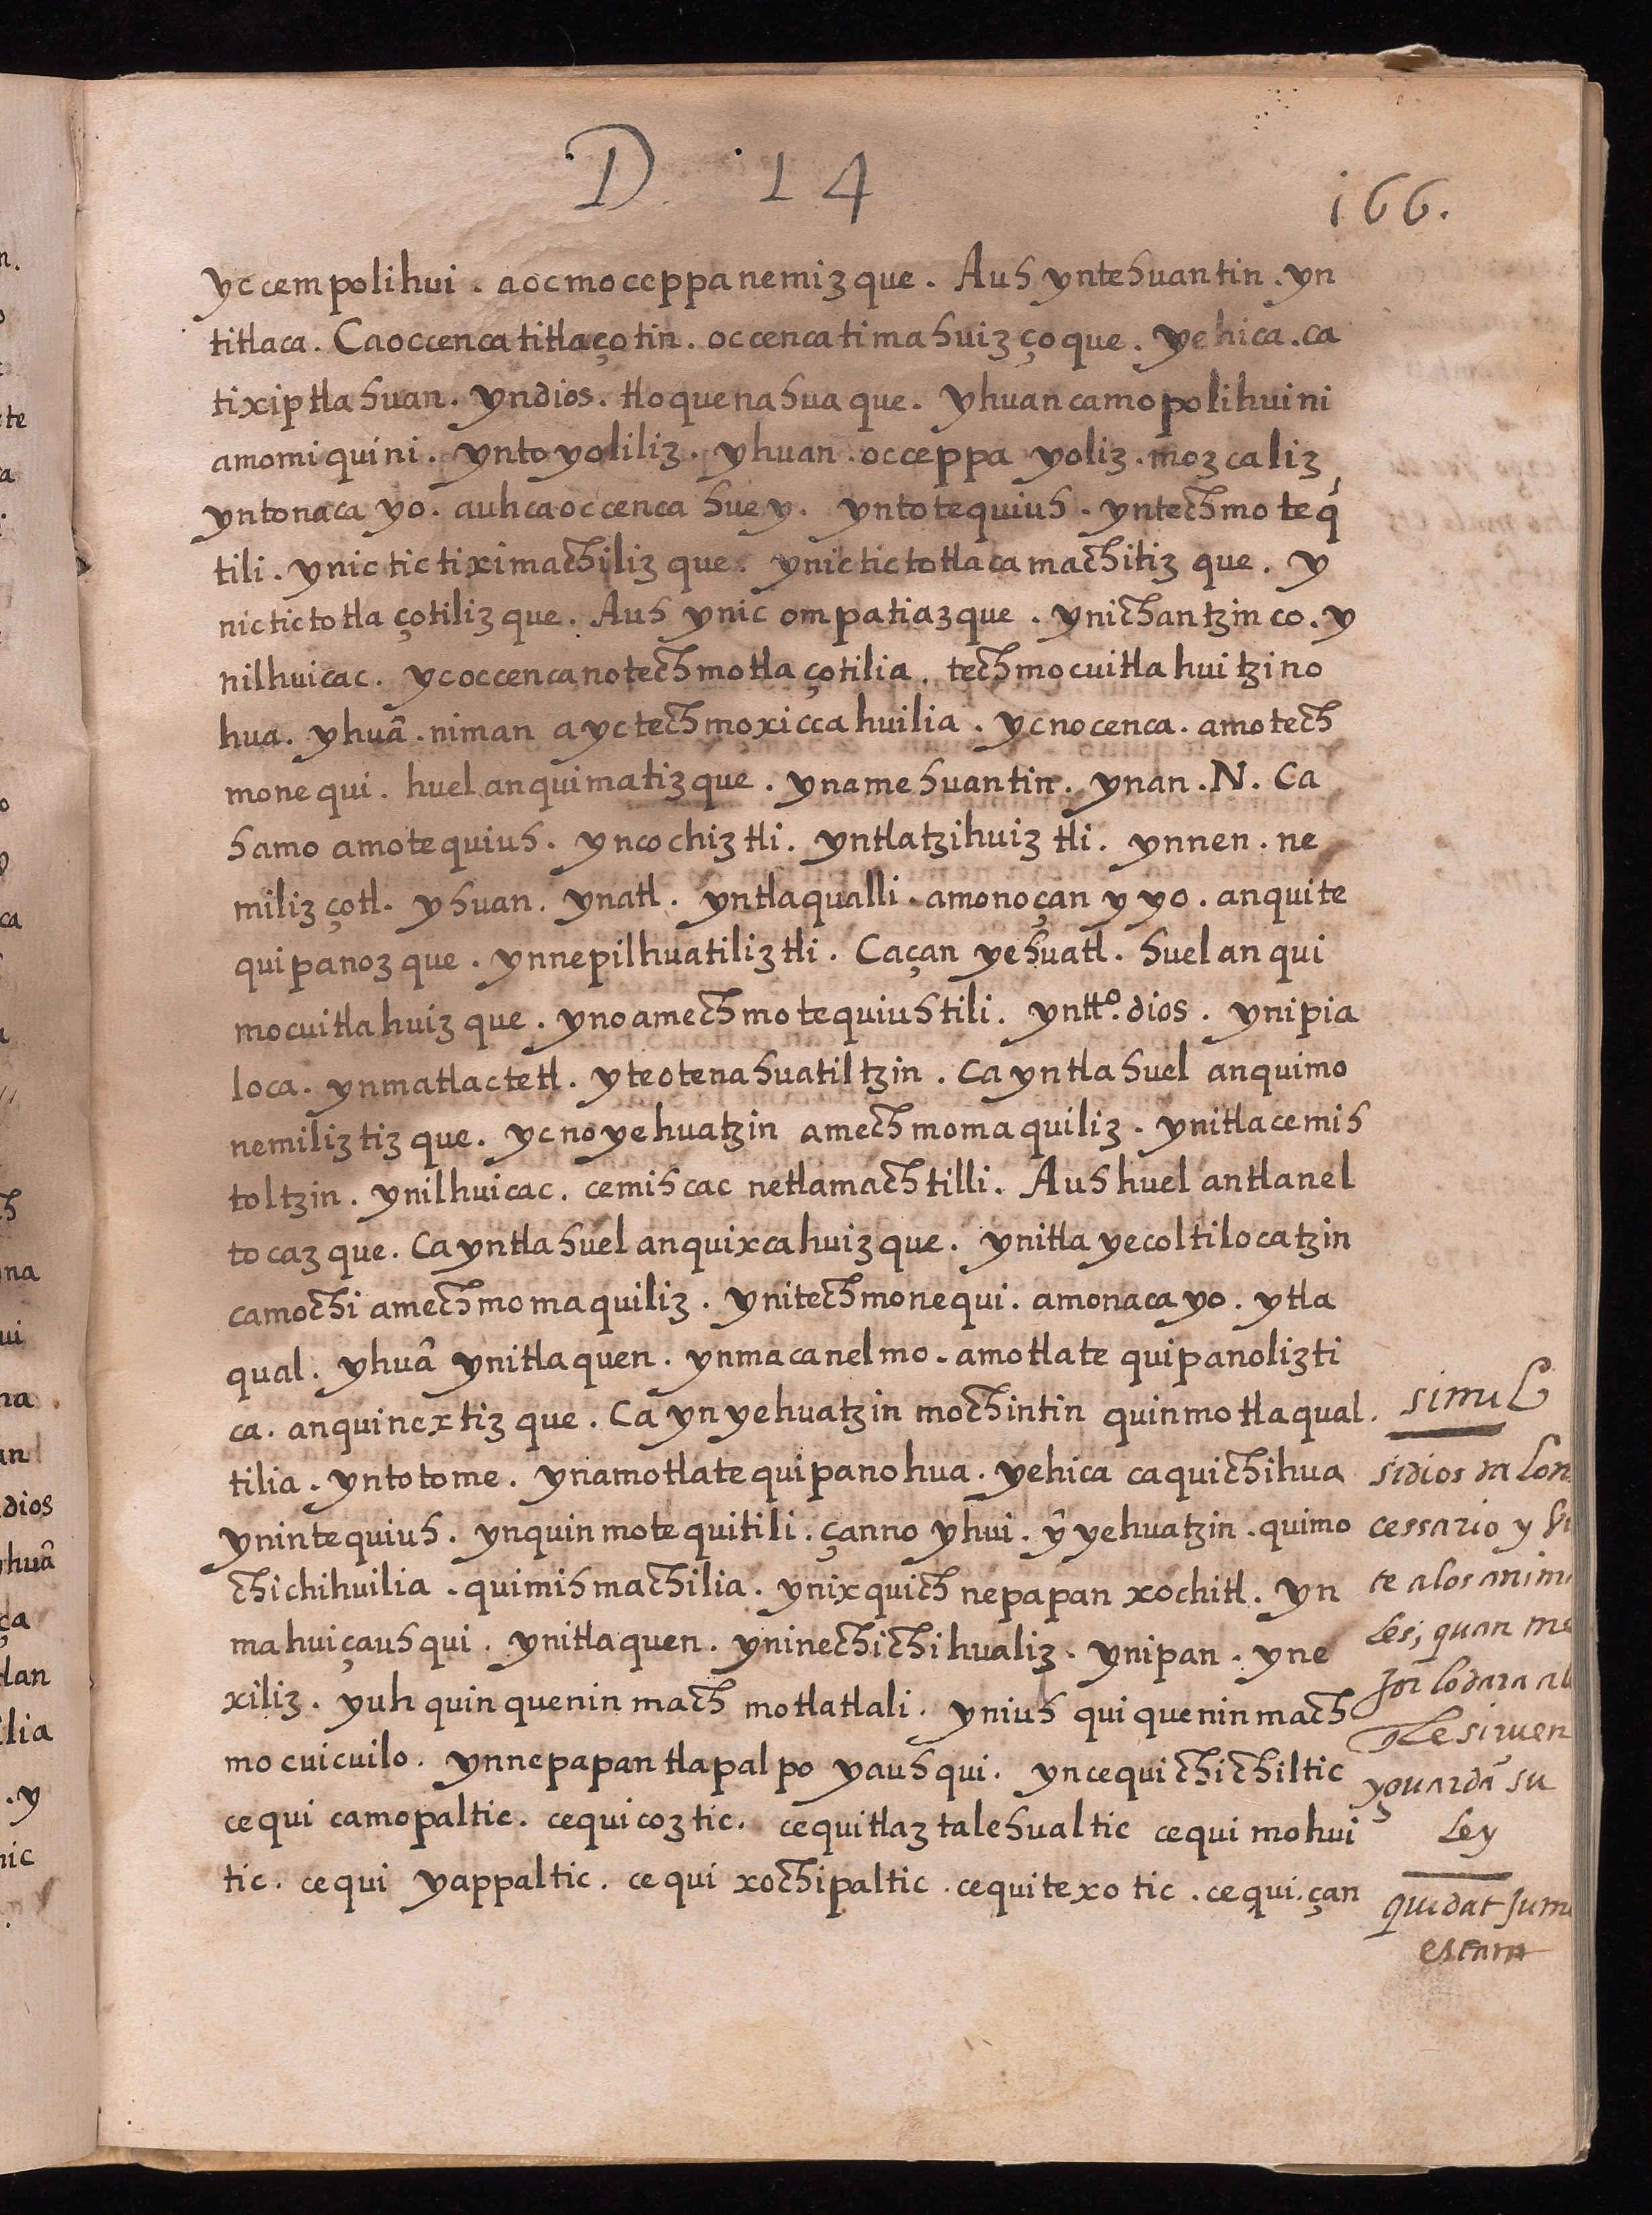 D. 14
166.
yc cem polihui. aocmo ceppa nemiz que. Auh yntehuantin. yn
titlaca. Ca occenca titlaçotin. occenca timahuizçoque. yehica. ca
tixiptlahuan. yndios. tloque nahuaque. yhuan camo polihuini
amomiquini. yntoyoliliz. yhuan. occeppa yoliz. mozcaliz
yntonacayo. auh ca occenca huey. yntotequiuh. yntechmoteq́
tili. ynic tictiximachiliz que. ynic tictotlacamachitiz que. y
nic tictotlaçotiliz que. Auh ynic ompa tiazque. ynichantzinco. y
nilhuicac. yc occenca notechmotlaçotilia. techmocuitlahuitzino
hua. yhuã. niman ayc techmoxiccahuilia. yc nocenca. amotech
monequi. huel anquimatizque. ynamehuantin. ynan. N. Ca
hamo amotequiuh. yncochiztli. yntlatzihuiztli. ynnen. ne
milizçotl. yhuan. ynatl. yntlaqualli. amonoçan yyo. anquite
quipanozque. ynnepilhuatiliztli. Caçan yehuatl. huel anqui
mocuitlahuizque. ynoamechmotequiuhtili. yntt.º dios. ynipia
loca. ynmatlactetl. yteotenahuatiltzin. Ca yntla huel anquimo
nemiliztizque. yc no yehuatzin amechmomaquiliz. ynitlacemih
toltzin. ynilhuicac. cemihcac netlamachtilli. Auh huel antlanel
tocazque. Ca yntla huel anquixcahuizque. ynitlayecoltilocatzin
ca mochi amechmomaquiliz. ynitechmonequi. amonacayo. ytla
qual. yhuã ynitlaquen. ynmacanelmo. amotlatequipanolizti
ca. anquinextizque. Ca ynyehuatzin mochintin quinmotlaqual.
tilia. yntotome. ynamotlatequipanohua. yehica ca quichihua
ynintequiuh. ynquinmotequitili. çanno yhui. ỹ yehuatzin. quimo
chichihuilia. quimihmachilia. ynixquich nepapan xochitl. yn
mahuiçauhqui. ynitlaquen. yninechichihualiz. ynipan. yne
xiliz. yuh quin quenin mach motlatlali. yniuh qui quenin mach
mocuicuilo. ynnepapan tlapalpoyauhqui. yncequi chichiltic
cequi camopaltic. cequi coztic. cequi tlaztalehualtic cequi mohui
tic. cequi yappaltic. cequi xochipaltic. cequi texotic. cequi. çan
simil
si dios da lo
cessario y
te a los anim
les, quan me
jor lo dara al
q̃ le siruen
y guardã su
ley
Qui dat jum
escam